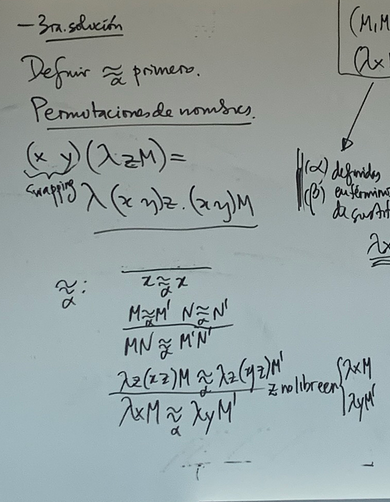 - 3ra. solución
Definir ≈α primero.
Permutaciones de nombres.
(x y)(λzM) =
swapping
λ(x y)z.(x y)M
≈α:
x ≈α x
M ≈α M' N ≈α N'
MN ≈α M'N'
λz(xz)M ≈α λz(yz)M' z no libre en { λxM
λxM ≈α λyM' λyM'
(M,M
(λx
(α) definidas
(β) en términos
de sustit
λx